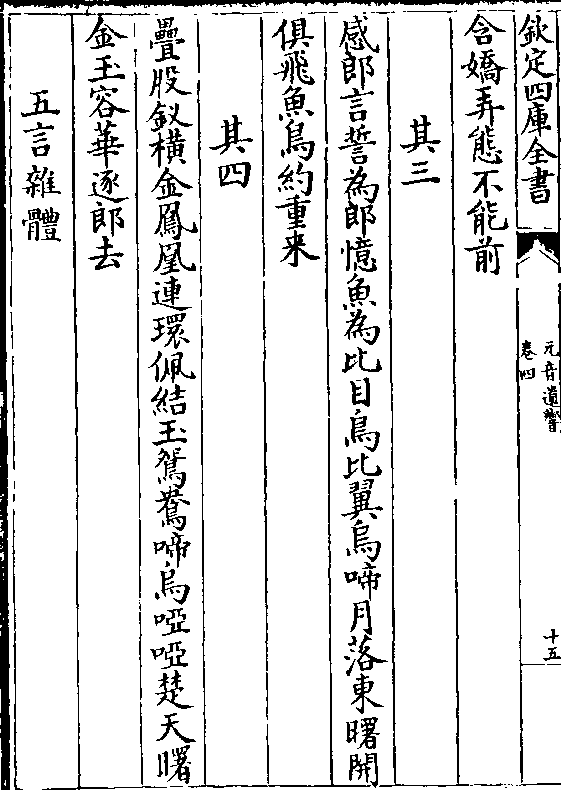 欽定四庫全書
元音遺響
卷四
十五
含嬌弄態不能前
其三
感郎言誓為郎憶魚為比目鳥比翼烏啼月落東曙開
俱飛魚鳥約重来
其四
疊股釵橫金鳳凰連環佩結玉鴛鴦啼烏啞啞楚天曙
金玉容華逐郎去
五言雜體